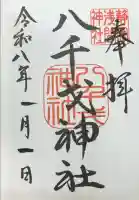 奉拝
八千戈神社
令和八年一月一日